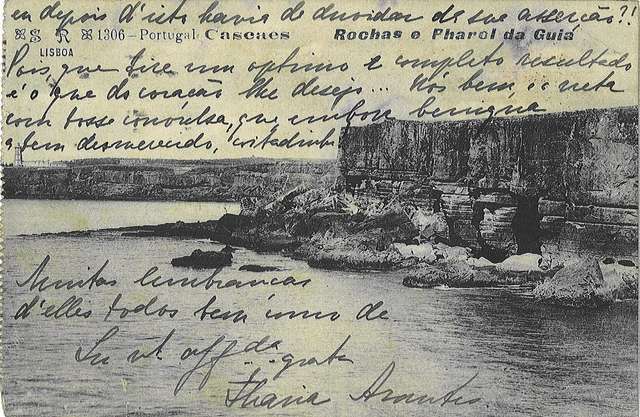 eu depois d'isto havia de duvidar de sua asserção?!
S R 1306 - Portugal Cascaes Rochas e Pharol da Guia
LISBOA
Pois que tire um optimo e completo resultado
é o que do coração lhe desejo... Nós bem, a neta
com tosse convulsa, que embora benigna
a tem desmerecido, coitadinha
Muitas lembranças
d'elles todos bem como de
att grata
Maria Arantes